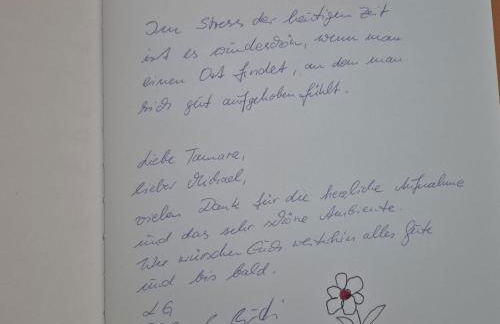 Im Stress der heutigen Zeit
ist es wunderschön, wenn man
einen Ort findet, an dem man
sich gut aufgehoben fühlt.
Liebe Tamara,
lieber Michael,
vielen Dank für die herzliche Aufnahme
und das sehr schöne Ambiente.
Wir wünschen Euch weiterhin alles Gute
und bis bald.
LG